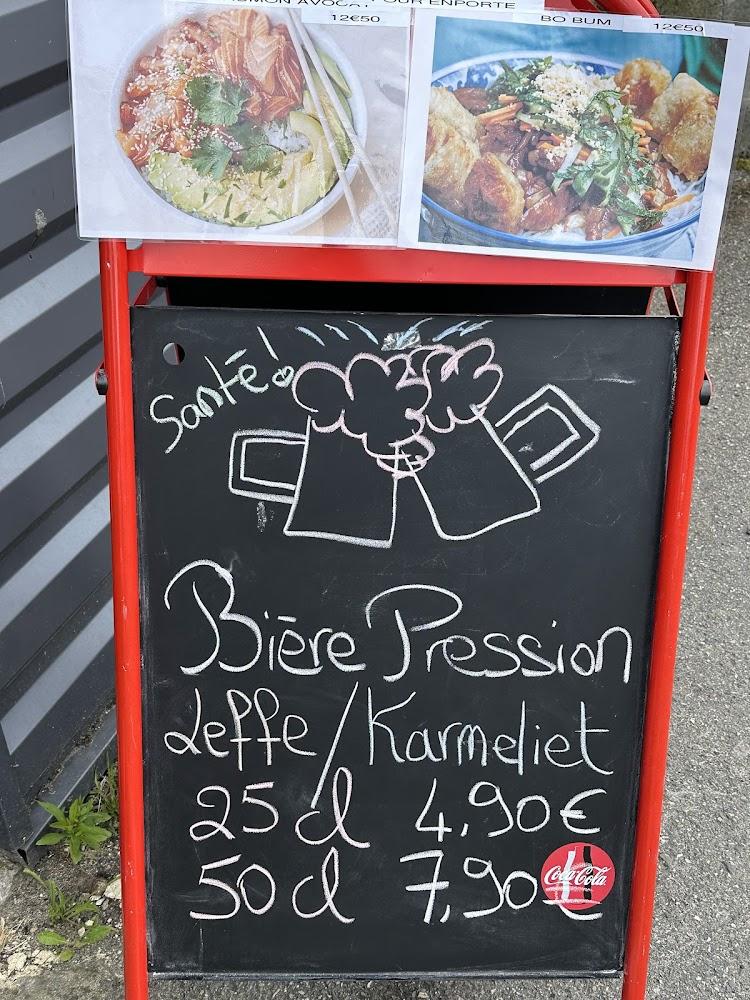 POUR EMPORTE
SAUMON AVOCAT
12€50
BO BUM 12€50
Santé!
Bière Pression
Leffe/Karmeliet
25cl 4,90€
50cl 7,90€
Coca-Cola